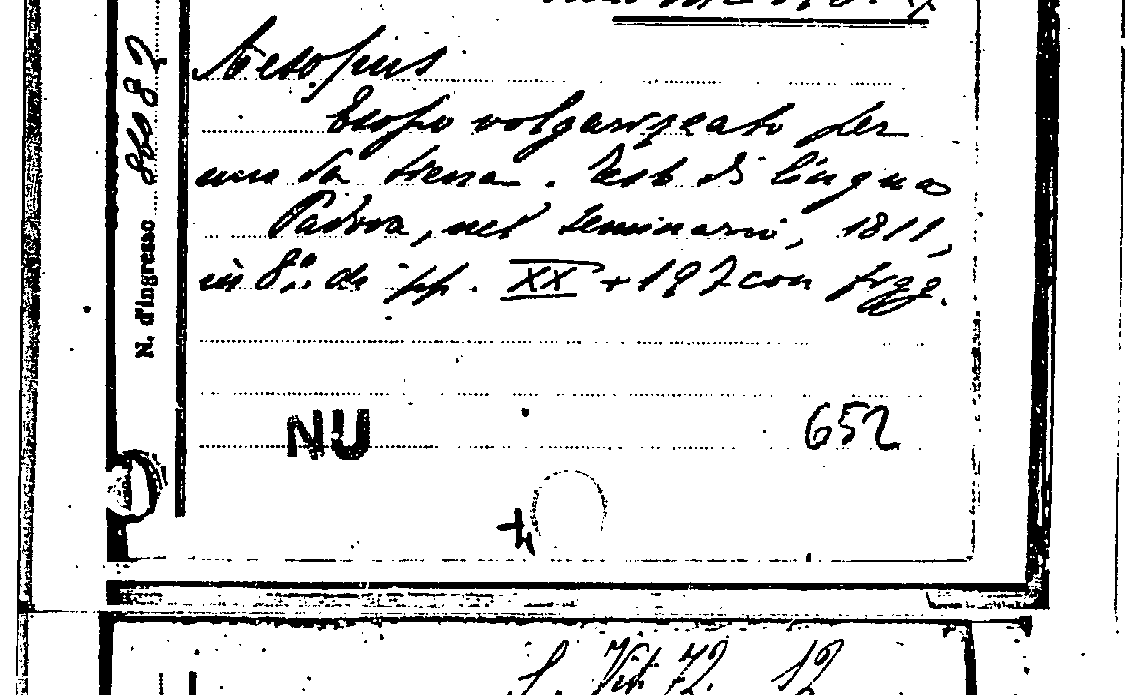 Aesopus
Esopo volgarizzato per
uno da Siena. Testo di lingua
Padova, nel Seminario, 1811,
in 8.° di pp. XX + 192 con fregg.
NU
652
N. d'ingresso
S. Vit. 72. 12